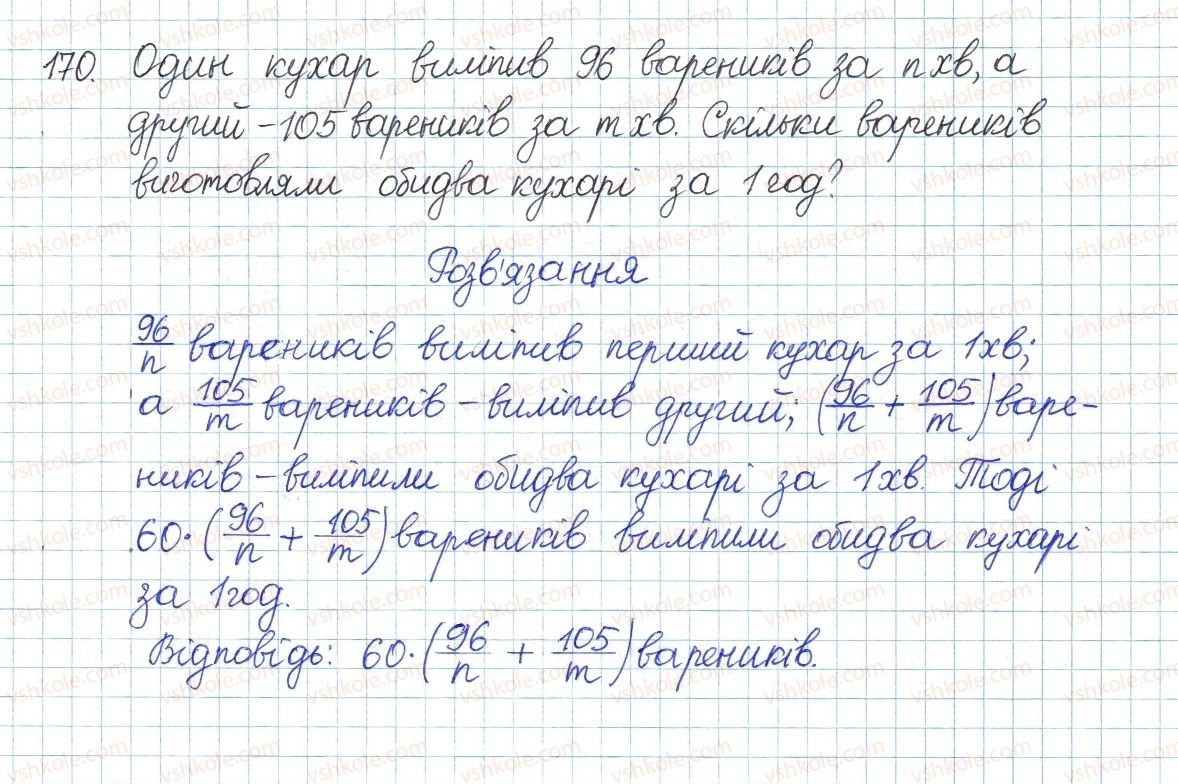 170. Один кухар виліпив 96 вареників за n хв, а
другий – 105 вареників за m хв. Скільки вареників
виготовляли обидва кухарі за 1 год?
Розв'язання
96/n вареників виліпив перший кухар за 1 хв;
а 105/m вареників – виліпив другий; (96/n + 105/m) варе-
ників – виліпили обидва кухарі за 1 хв. Тоді
60·(96/n + 105/m) вареників виліпили обидва кухарі
за 1 год.
Відповідь: 60·(96/n + 105/m) вареників.
vshkole.com